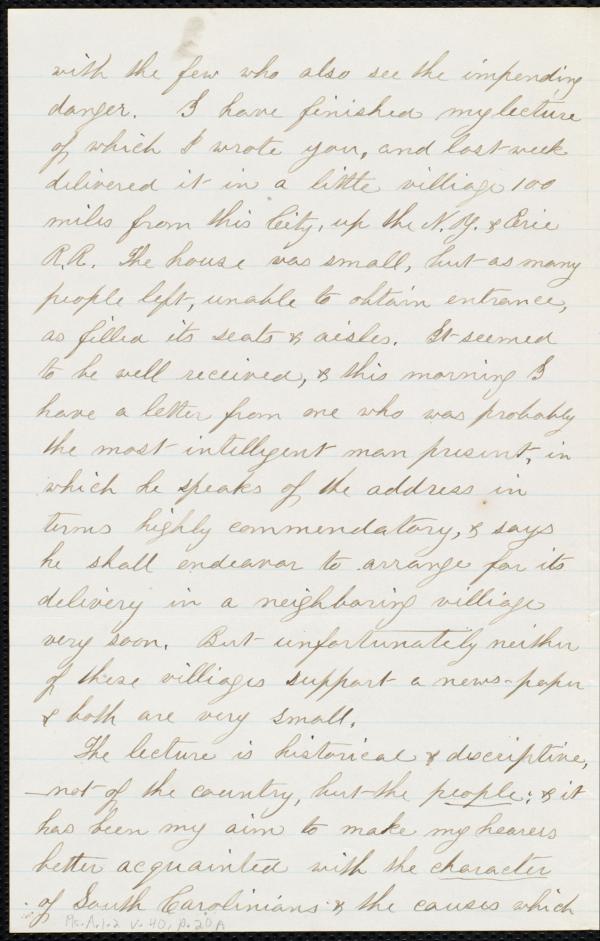 with the few who also see the impending
danger. I have finished my lecture
of which I wrote you, and last week
delivered it in a little villiage 100
miles from this City, up the N.Y. & Erie
R.R. The house was small, but as many
people left, unable to obtain entrance,
as filled its seats & aisles. It seemed
to be well received, & this morning I
have a letter from one who was probably
the most intelligent man present, in
which he speaks of the address in
terms highly commendatory, & says
he shall endeavor to arrange for its
delivery in a neighboring villiage
very soon. But unfortunately neither
of these villiages support a news-paper
& both are very small.
The lecture is historical & discriptive,
—not of the country, but the people; & it
has been my aim to make my hearers
better acquainted with the character
of South Carolinians & the causes which
Ms.A.1.2 v.40, p.20A